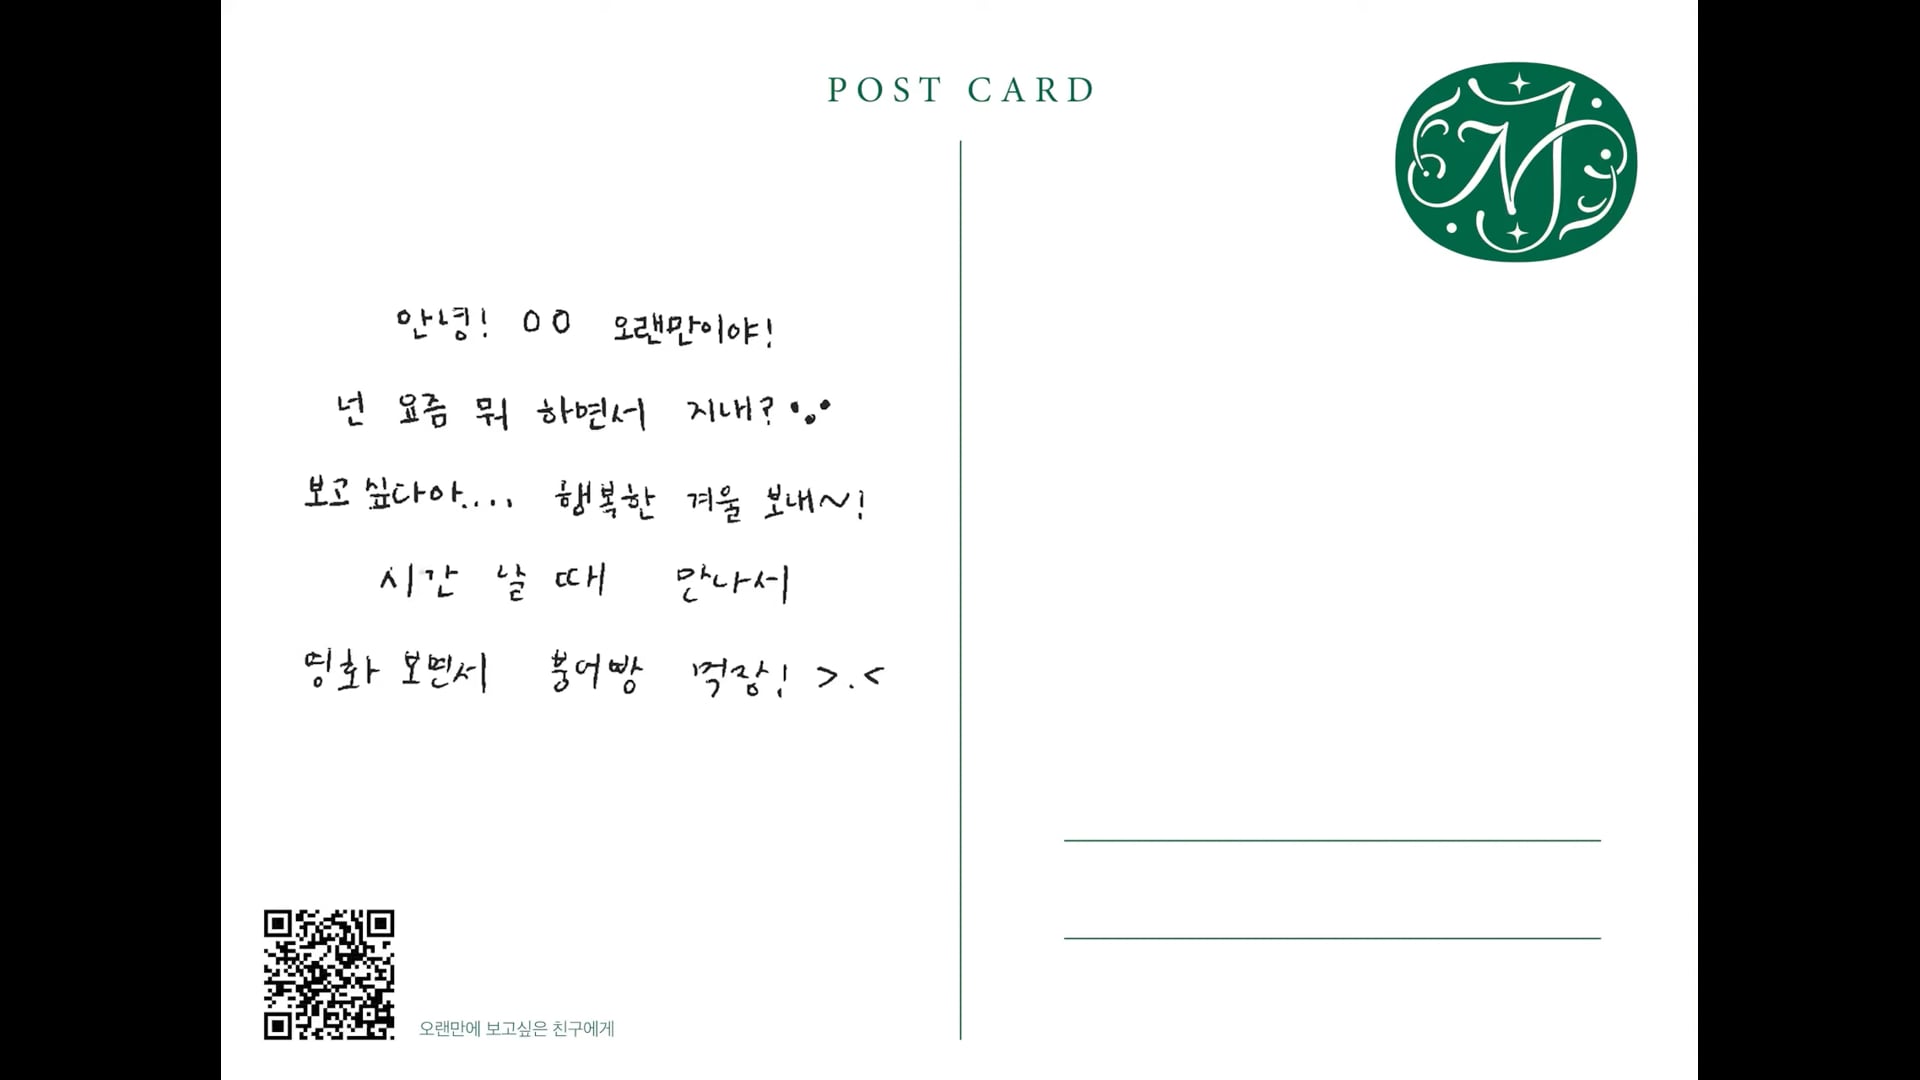 POST CARD
안녕! OO 오랜만이야!
넌 요즘 뭐 하면서 지내?
보고 싶다아.... 행복한 겨울 보내~!
시간 날 때 만나서
영화 보면서 붕어빵 먹장! >.<
오랜만에 보고싶은 친구에게